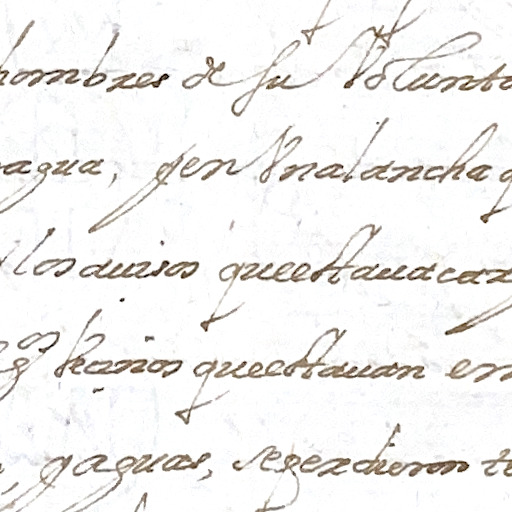 hombres de su Volunta
agua, y en Vnalancha q
los auisos queestauacar
Varios queestauan en
y aguas, seperdieron t